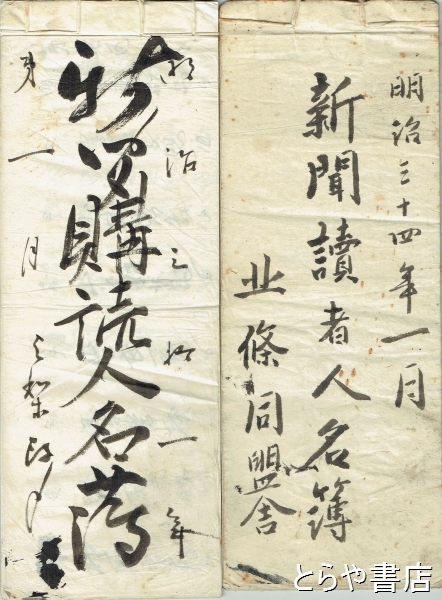 明治三十四年一月
新聞讀者人名簿
北條同盟舎
明治三拾一年
新聞購読人名簿
第一月
とらや書店